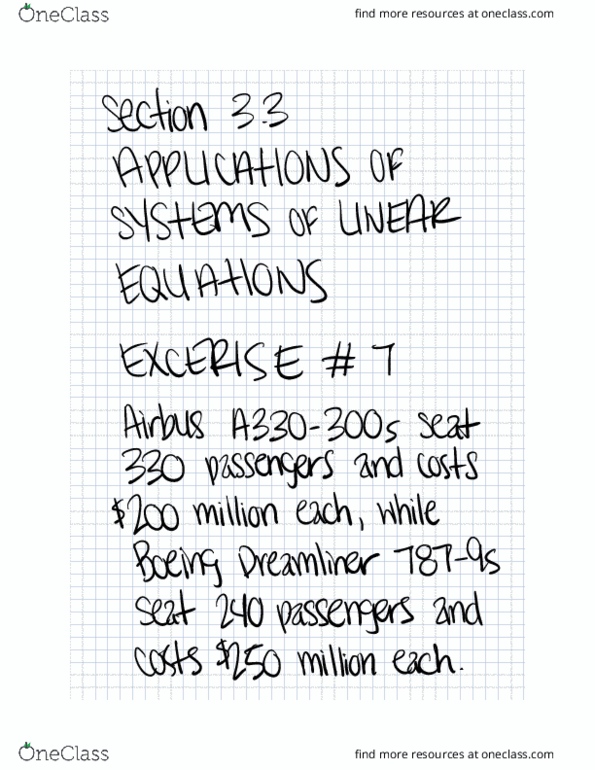 OneClass
find more resources at oneclass.com
Section 3.3
APPLICATIONS OF
SYSTEMS OF LINEAR
EQUATIONS
EXCERISE # 7
Airbus A330-300s seat
330 passengers and costs
$200 million each, while
Boeing Dreamliner 787-9s
seat 240 passengers and
costs $250 million each.
OneClass
find more resources at oneclass.com